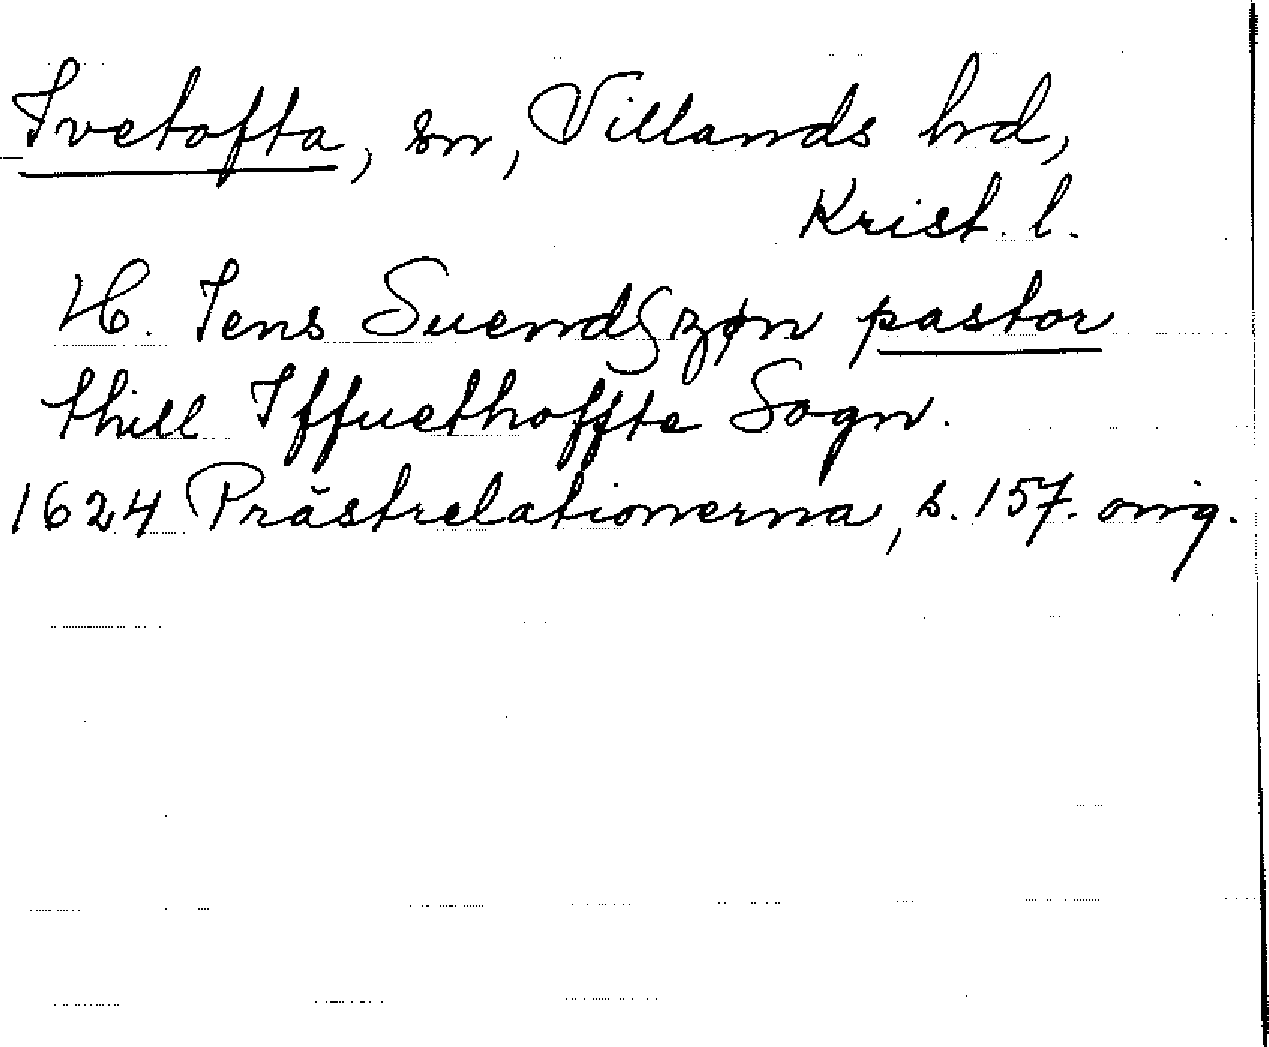 Ivetofta, sn, Villands hd,
Krist. l.
H. Iens Suendſzøn pastor
thill Iffuethoffte Sogn.
1624 Prästrelationerna, s. 157. orig.